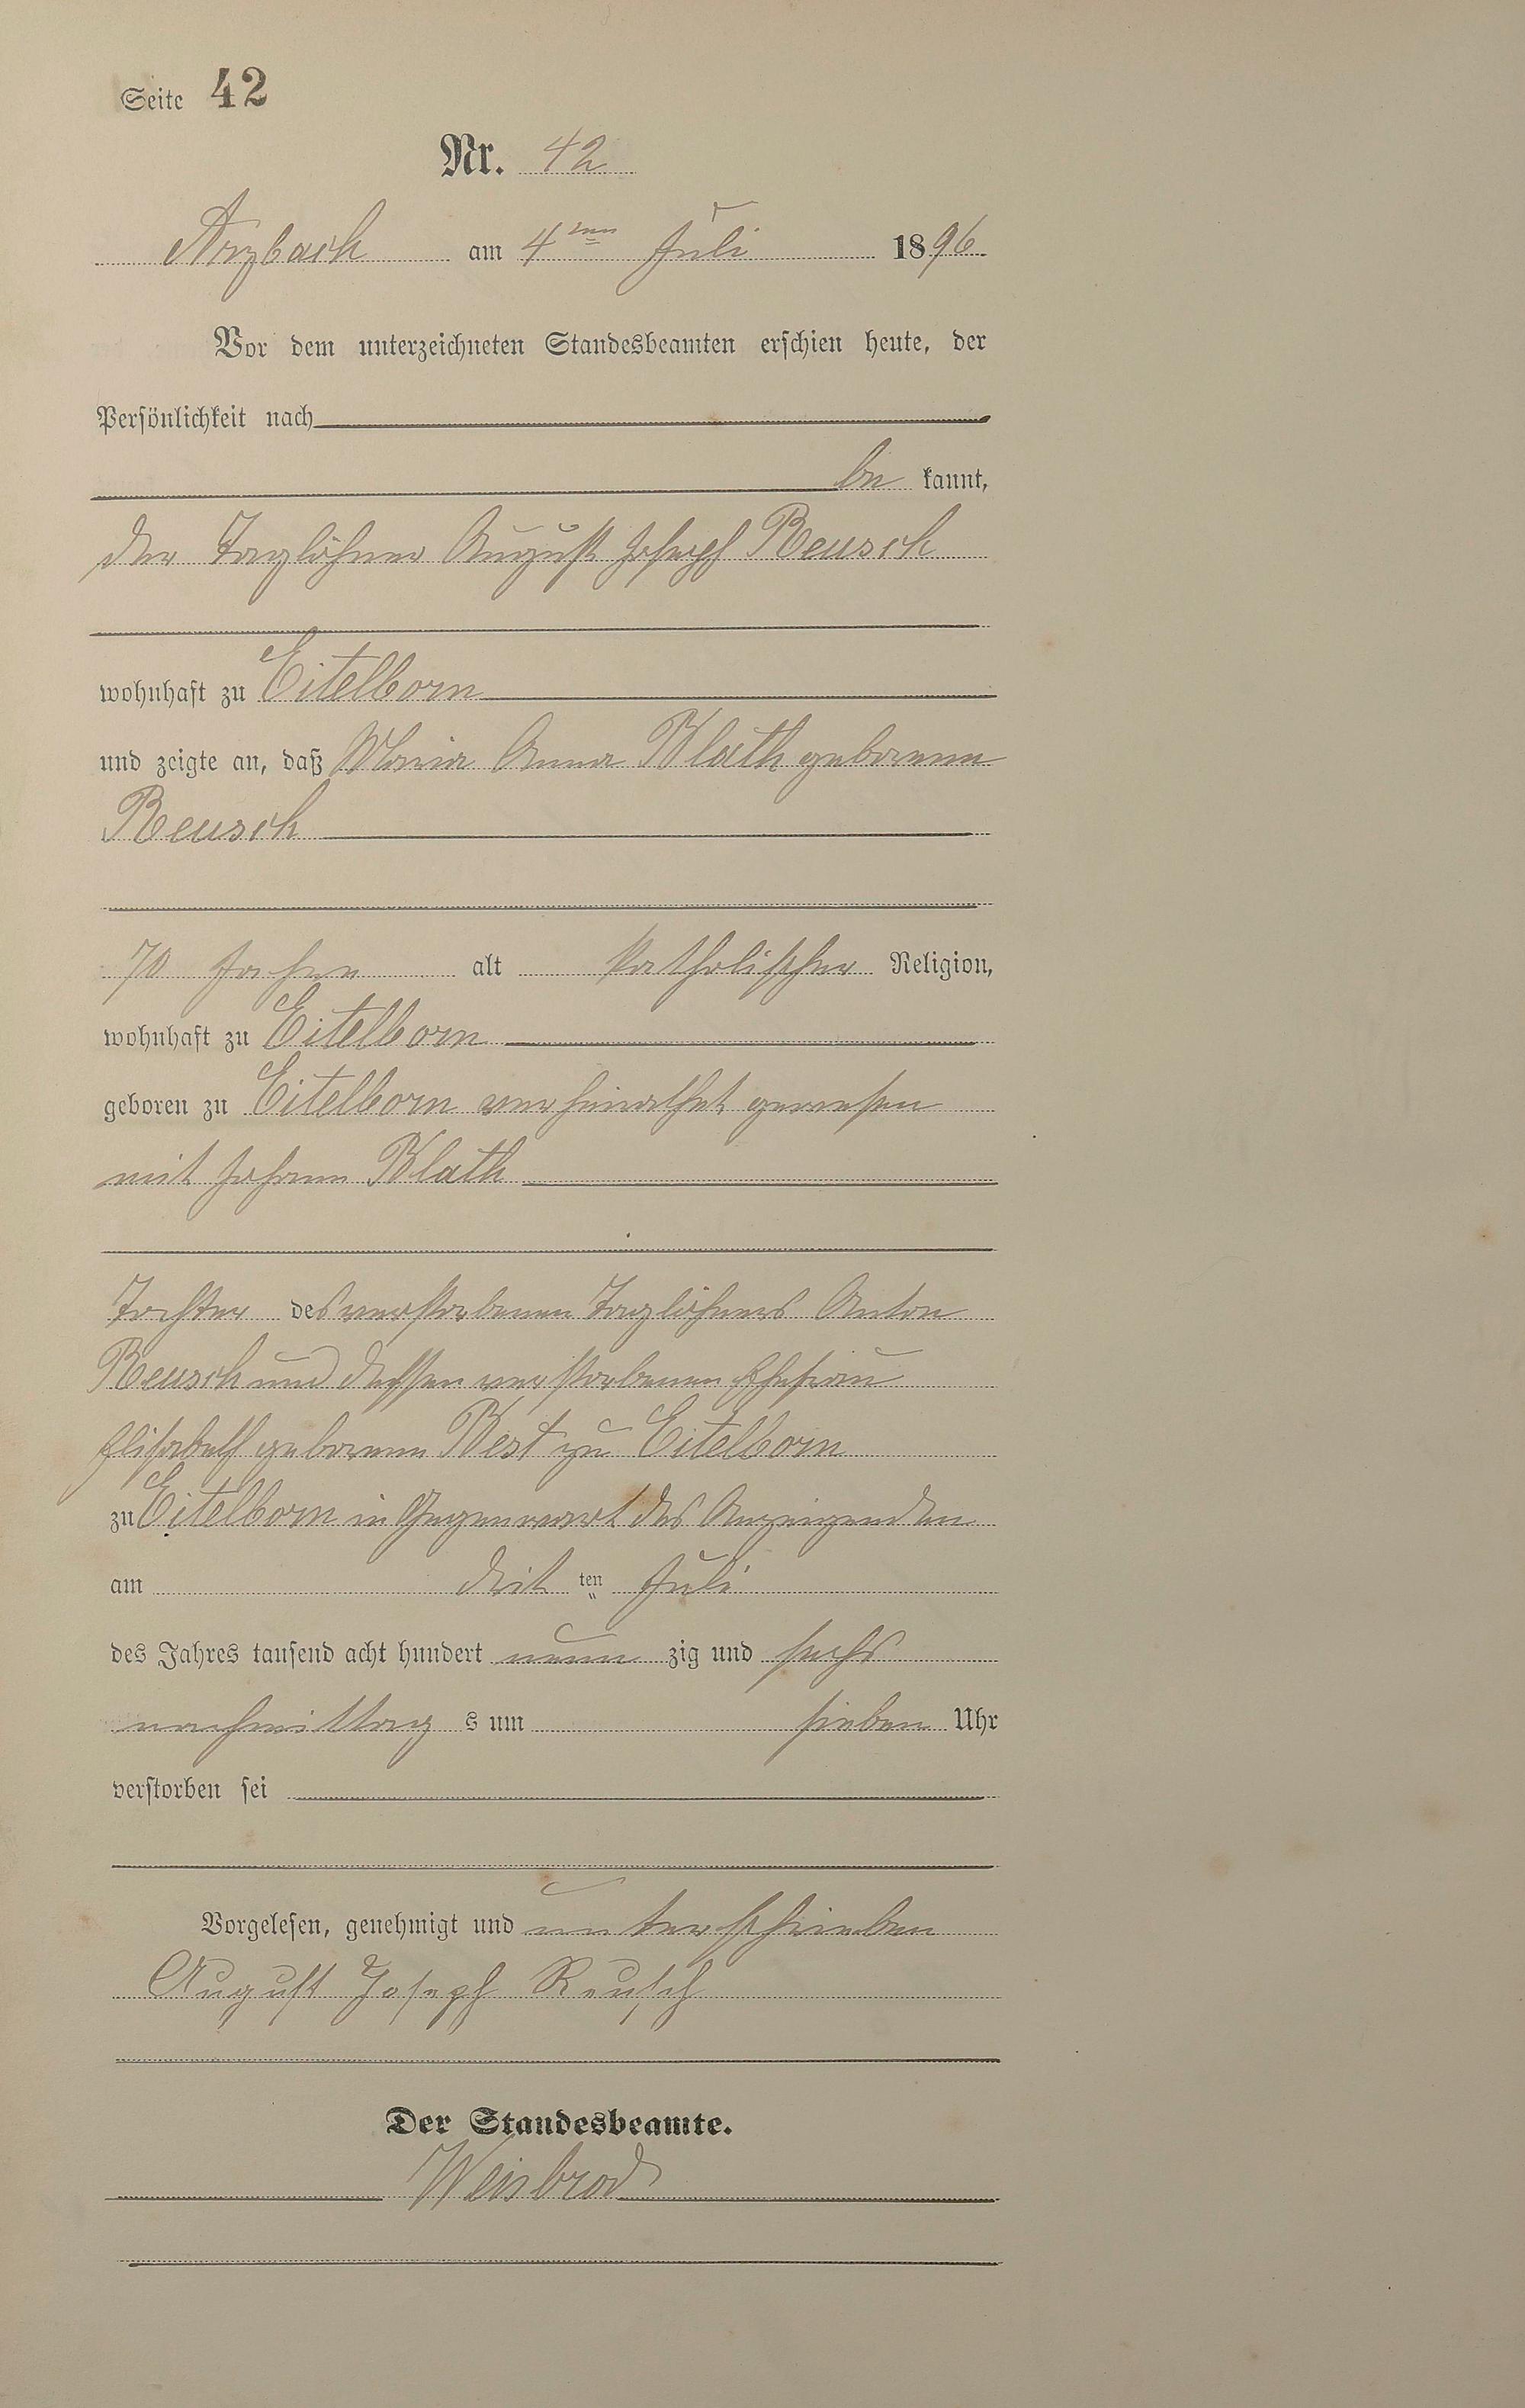 Seite 42
Nr. 42
Arzbach am 4ten Juli 1896.
Vor dem unterzeichneten Standesbeamten erschien heute, der
Persönlichkeit nach
be kannt,
der Taglöhner August Joseph Reusch
wohnhaft zu Eitelborn
und zeigte an, daß Maria Anna Blath geborene
Reusch
70 Jahre alt katholischer Religion,
wohnhaft zu Eitelborn
geboren zu Eitelborn verheirathet gewesen
mit Johann Blath
Tochter des verstorbenen Taglöhners Anton
Reusch und dessen verstorbenen Ehefrau
Elisabeth geborene Best zu Eitelborn
zu Eitelborn in Gegenwart des Anzeigenden
am drit ten Juli
des Jahres tausend acht hundert neun zig und sechs
nachmittag s um sieben Uhr
verstorben sei
Vorgelesen, genehmigt und unterschrieben
August Joseph Reusch
Der Standesbeamte.
Weisbrod